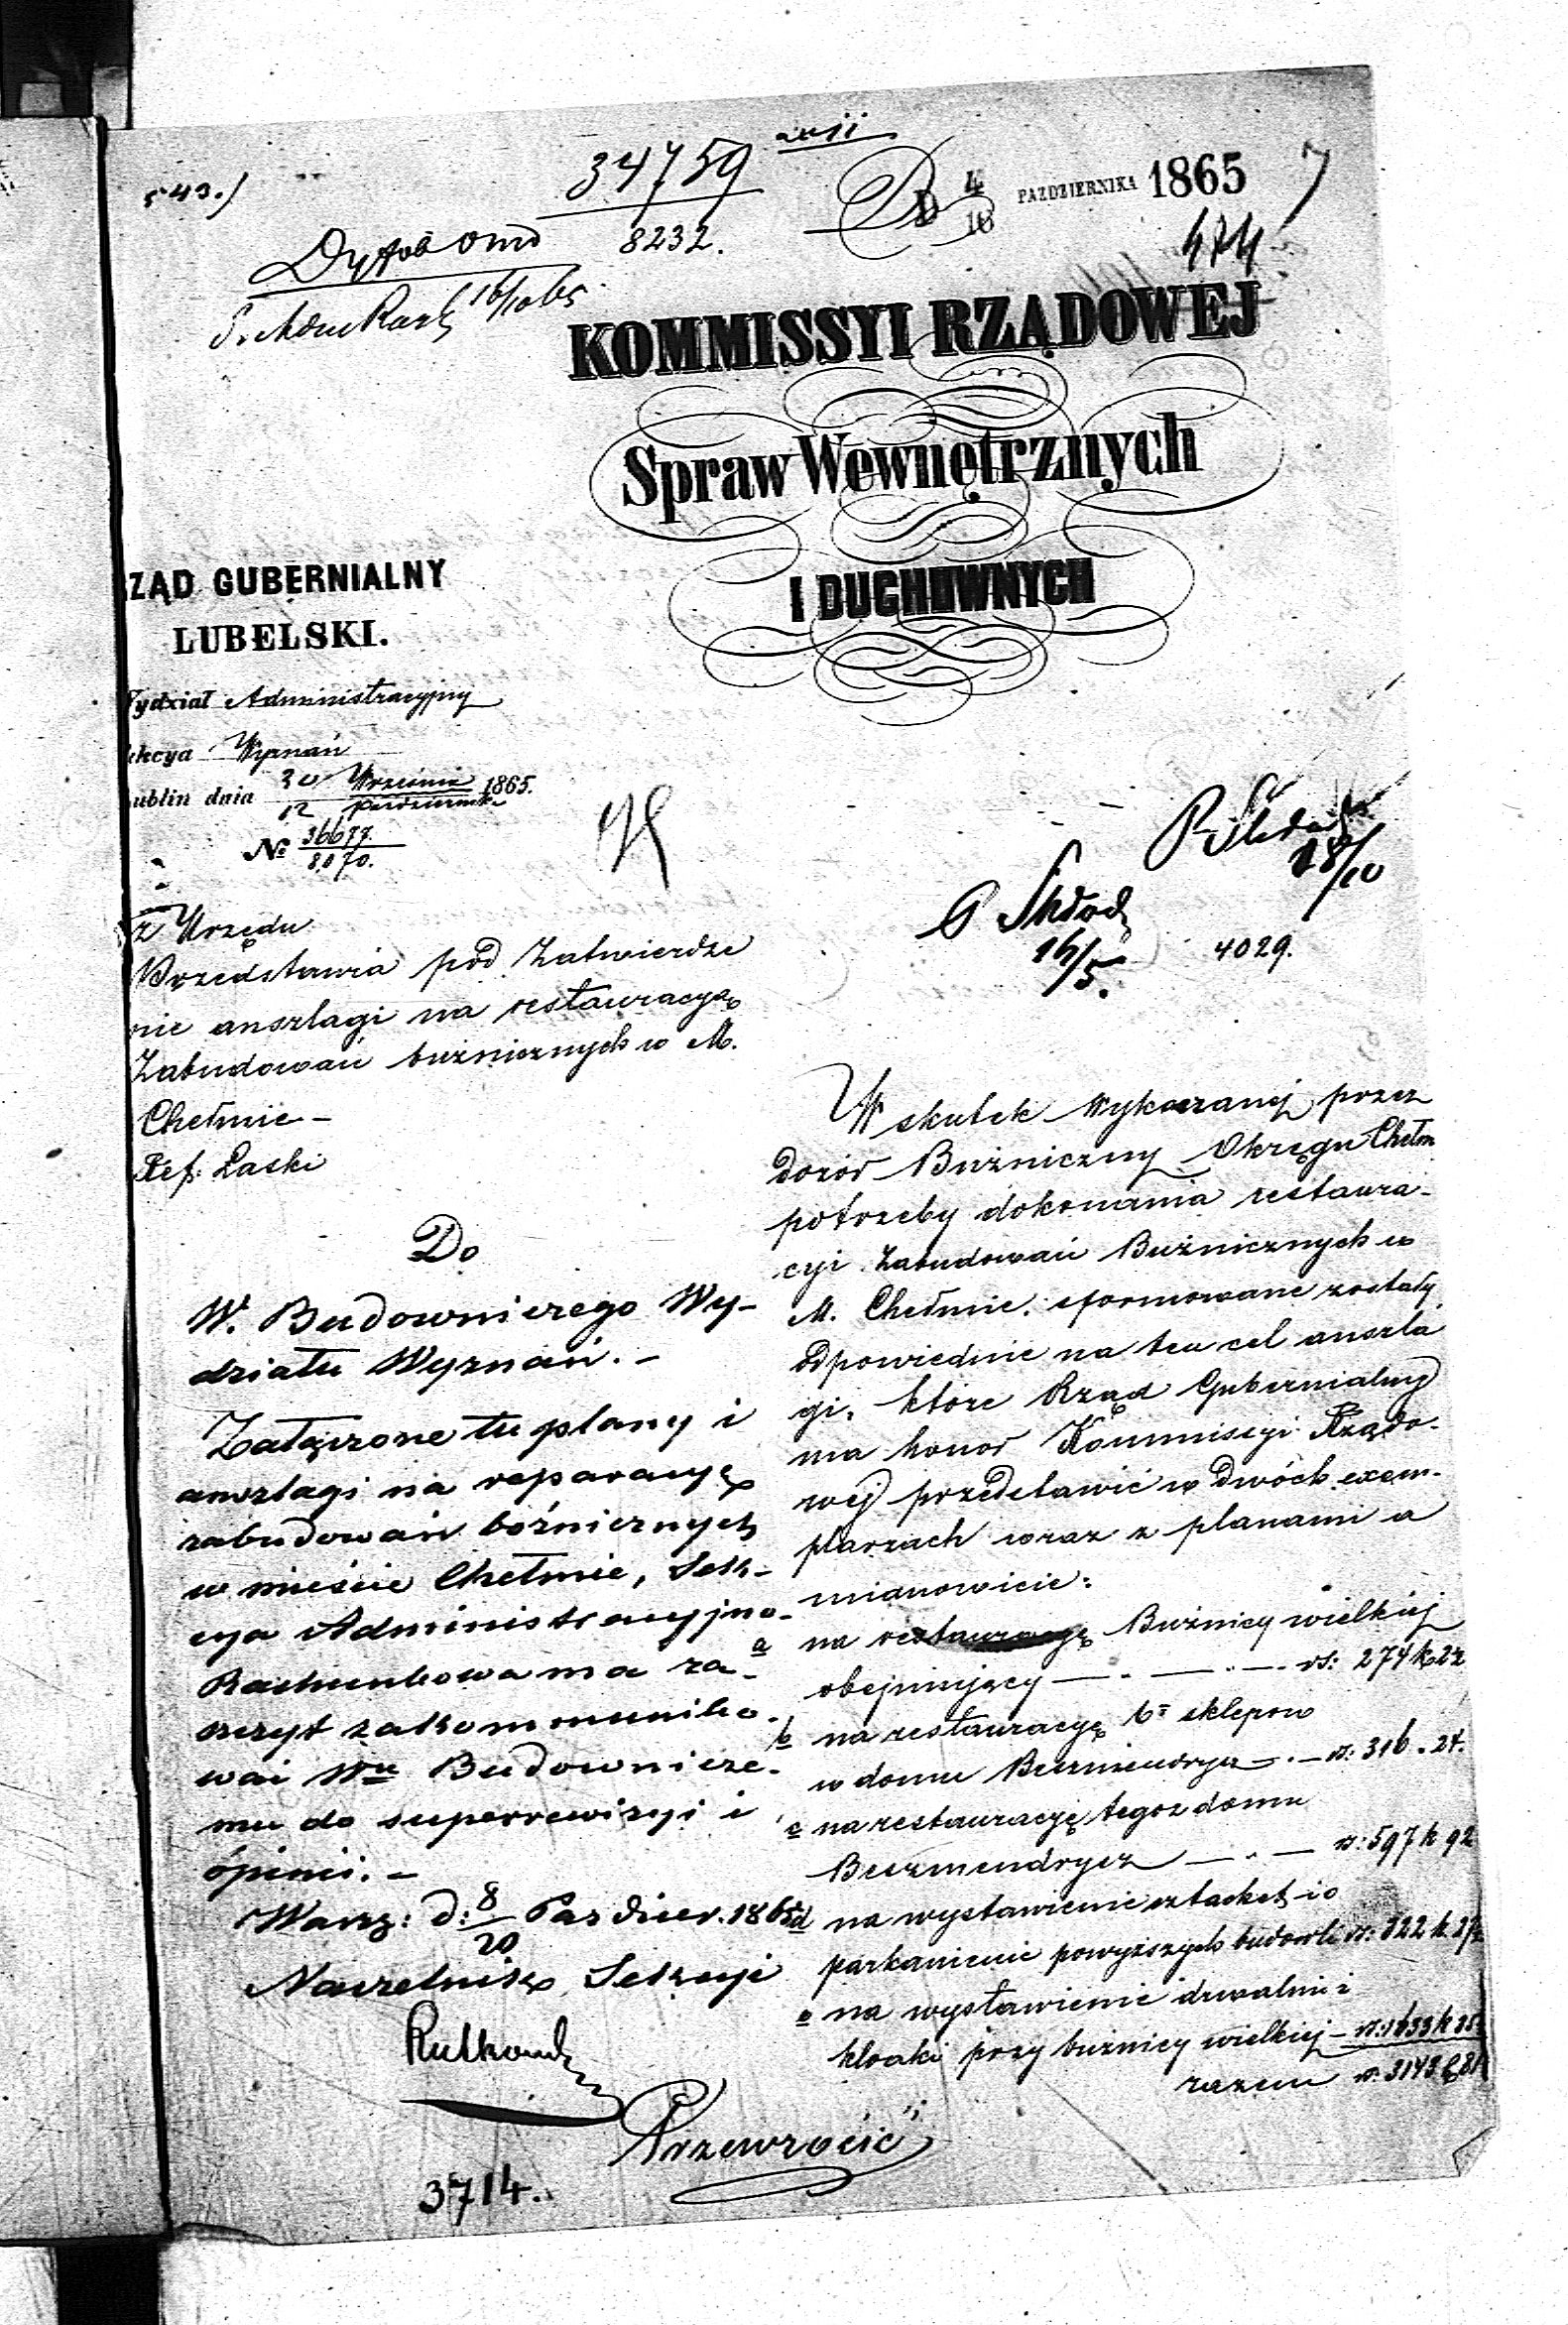 543.)
34759
8232.
D 4/16 PAŹDZIERNIKA 1865
7
474
16/10 65
KOMMISSYI RZĄDOWEJ
Spraw Wewnętrznych
I DUCHOWNYCH
RZĄD GUBERNIALNY
LUBELSKI.
Wydział Administracyjny
Sekcya Wyznań
Lublin dnia 30 Września / 12 Października 1865.
№ 36677 / 8070.
18/10
16/5.
4029.
z Urzędu
Przedstawia pod Zatwierdze
nie anszlagi na restauracyę
Zabudowań bużnicznych w M.
Chełmie –
Ref: Laski
Do
W. Budowniczego Wy-
działu Wyznań. –
Załączone tu plany i
anszlagi na reparacyę
zabudowań bóżnicznych
w mieście Chełmie, Sek-
cya Administracyjno-
Rachunkowa ma za-
szczyt zakommuniko-
wać Wu Budownicze-
mu do superrewizyi i
opinii. –
Warsz: d: 8/20 Paździer. 1865
Naczelnik Sekcyi
Rutkowski
3714.
W skutek wykazanej przez
Dozór Bużniczny Okręgu Chełm
potrzeby dokonania restaura-
cyi Zabudowań Bużnicznych w
M. Chełmie. sformowane zostały
odpowiednie na ten cel anszla
gi, które Rząd Gubernialny
ma honor Kommissyi Rządo-
wej przedstawić w dwóch exem-
plarzach wraz z planami a
mianowicie:
a na restauracyę Bużnicy wielkiej
obejmujący — . — . — . rs: 274 k 22
b na restauracyę 6u sklepow
w domu — . — rs: 316 . 24.
c na restauracyę tegoż domu
— . — rs: 597 k 92
d na wystawienie sztachet i o
parkanienie powyższych budowli rs: 322 k
e na wystawienie drwalni i
kloaki przy bużnicy wielkiej – rs: 1633 k
razem rs. 3143 k 81
Przewrócić